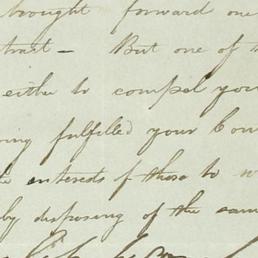 brought forward one
trust — But one of
either to compel you
ing fulfilled your Con
interests of those to
by disposing of the same